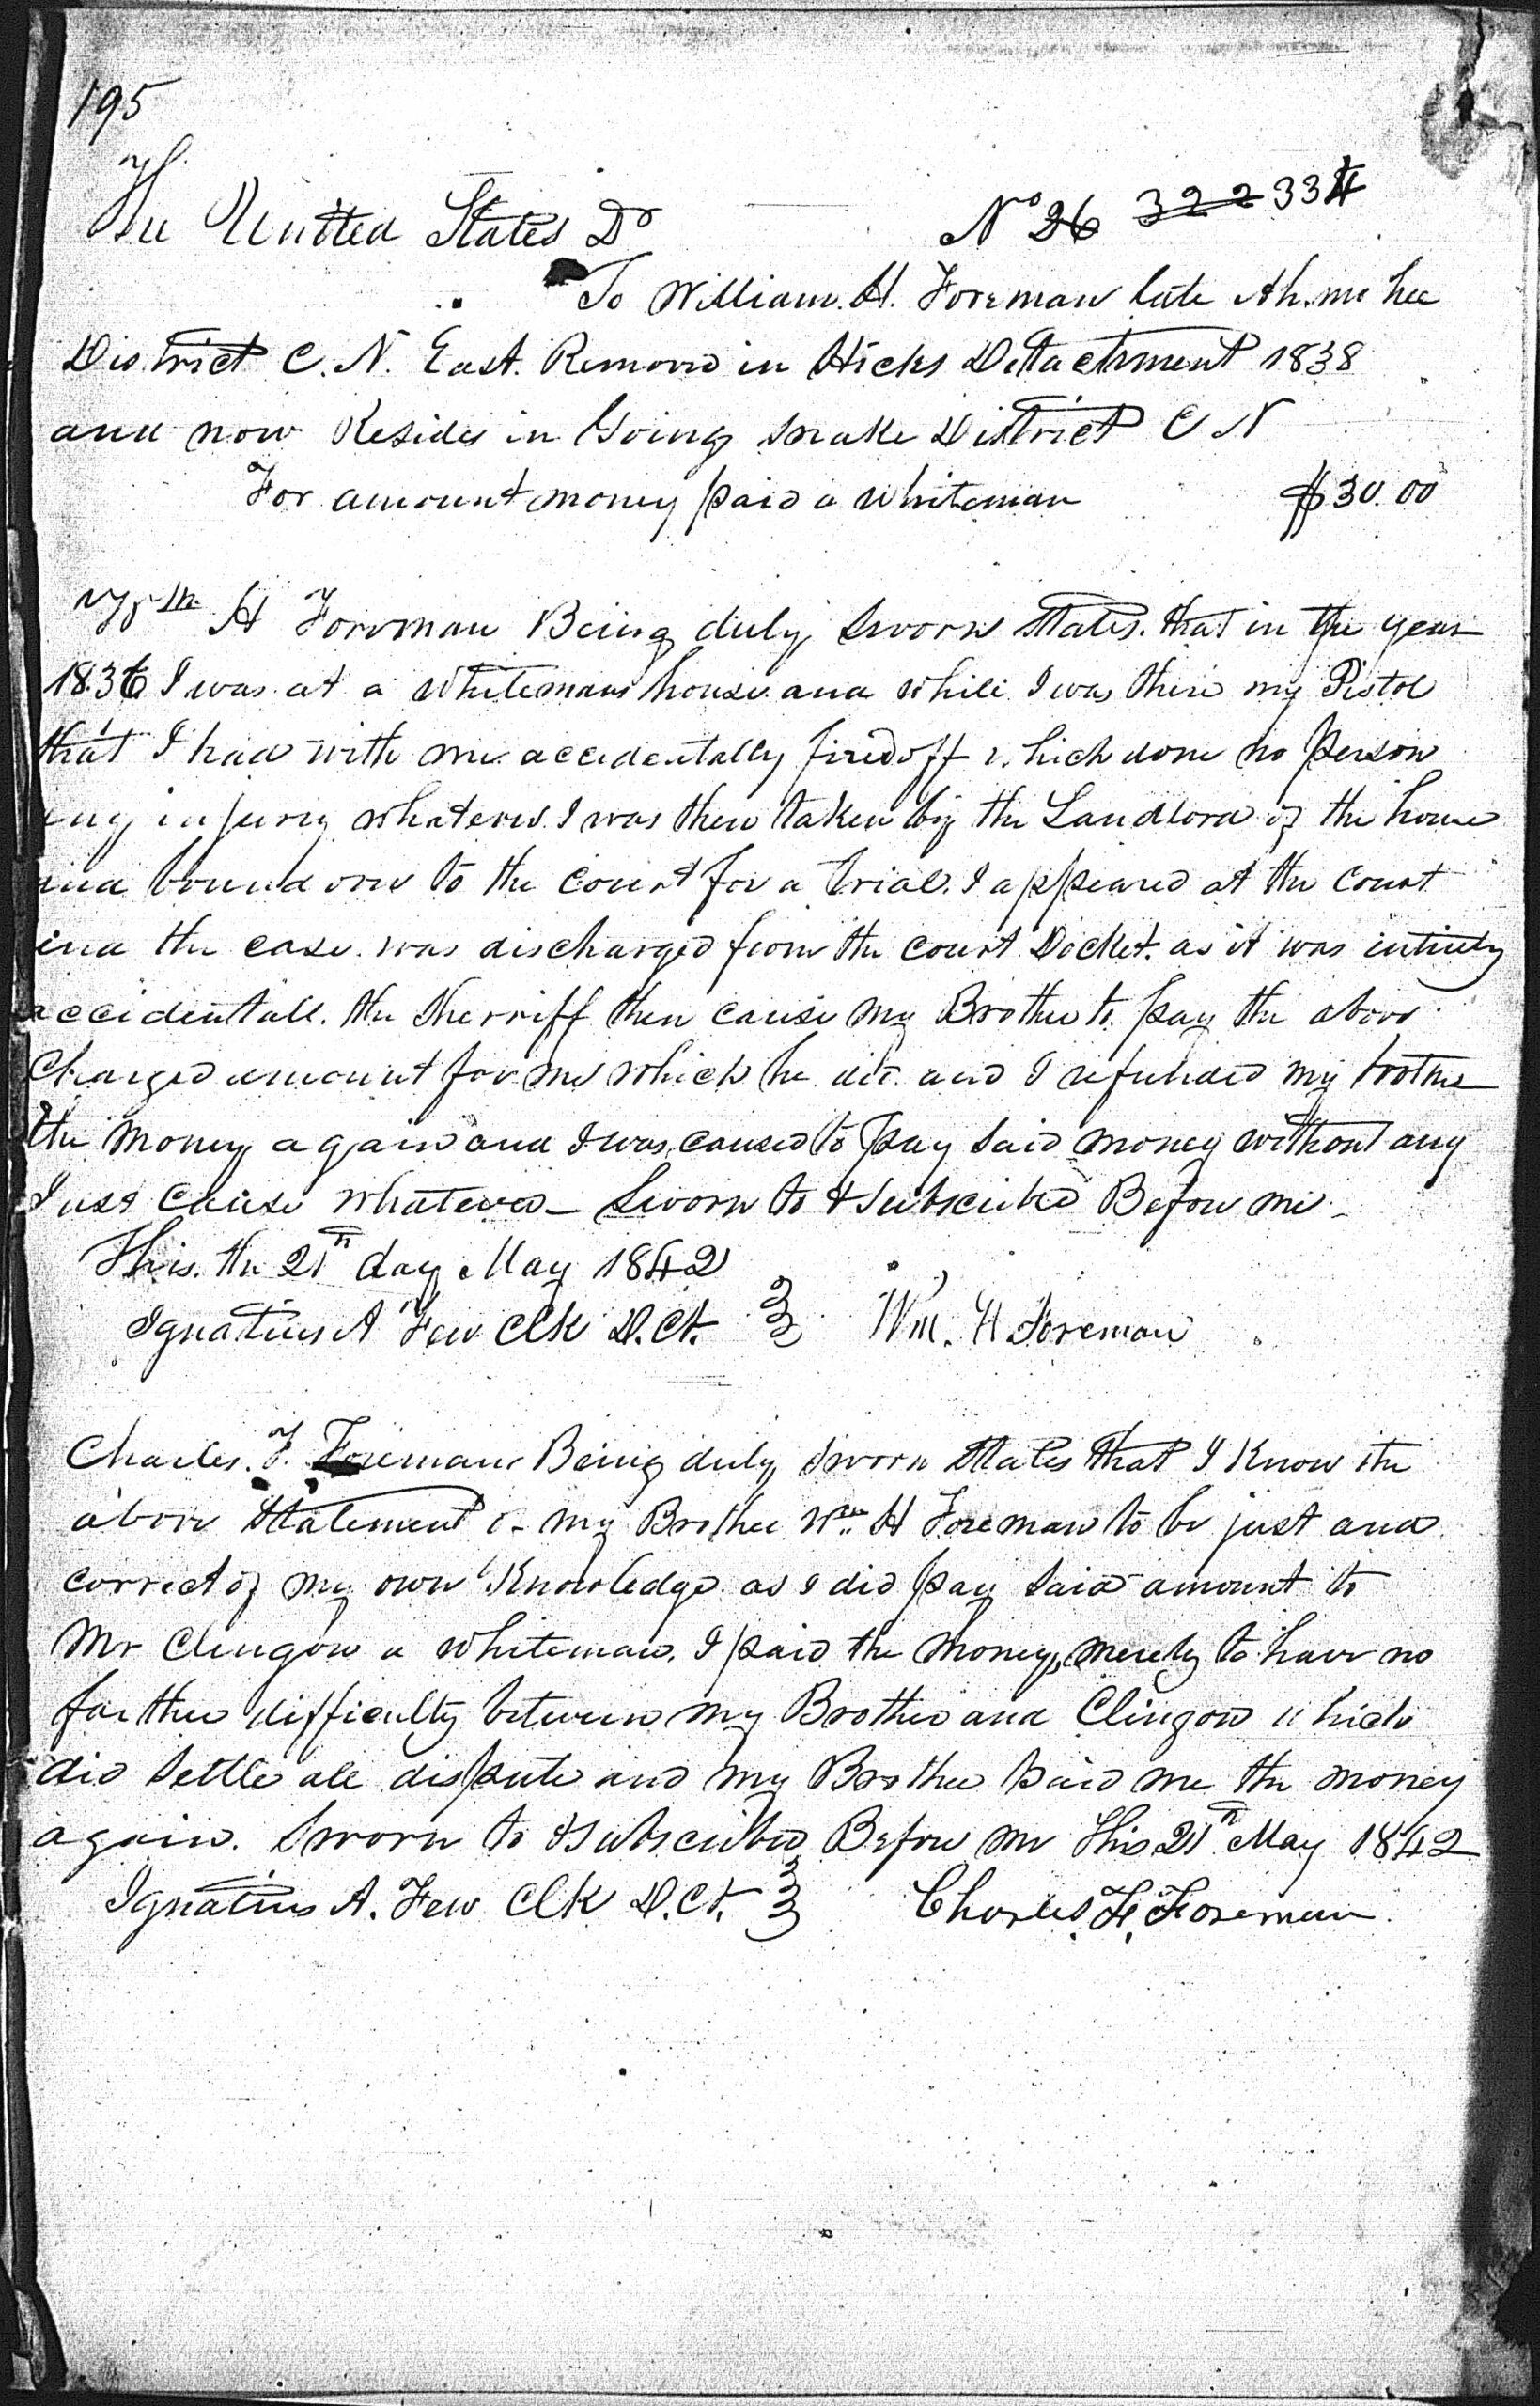 195
The United States Dr
No 26 322 334
To William. H. Foreman late Ah.mo hee
District C. N. East. Removed in Hicks Detachment 1838
and now Resides in Going Snake District C N
For amount money paid a Whiteman $30.00
Wm H Foreman Being duly Sworn States. that in the year
1836 I was at a Whitemans house and while I was there my Pistol
that I had with me accidentally fired off which done no person
any injury whatever. I was then taken by the Landlord of the house
and bound over to the court for a trial. I appeared at the court
and the case was discharged from the court Docket. as it was intirely
accidentall. the Sherriff then cause my Brother to pay the above
Charged amount for me which he did and I refunded my brother
the money again and I was caused to pay said money without any
Just Cause whatever – Sworn to & Subscribed Before me
This the 21st day May 1842
Ignatius A Few Clk D. Ct. Wm. H Foreman
Charles. F. Foreman Being duly Sworn States that I Know the
above Statement of my Brother Wm H Foreman to be just and
correct of my own Knowledge as I did pay said amount to
Mr Clingon a Whiteman. I paid the money, merely to have no
further difficulty between my Brother and Clingon which
did Settle all dispute and my Brother paid me the money
again. Sworn to & Subscribed Before me This 21st May 1842
Ignatius A. Few Clk D. Ct. Charles F. Foreman